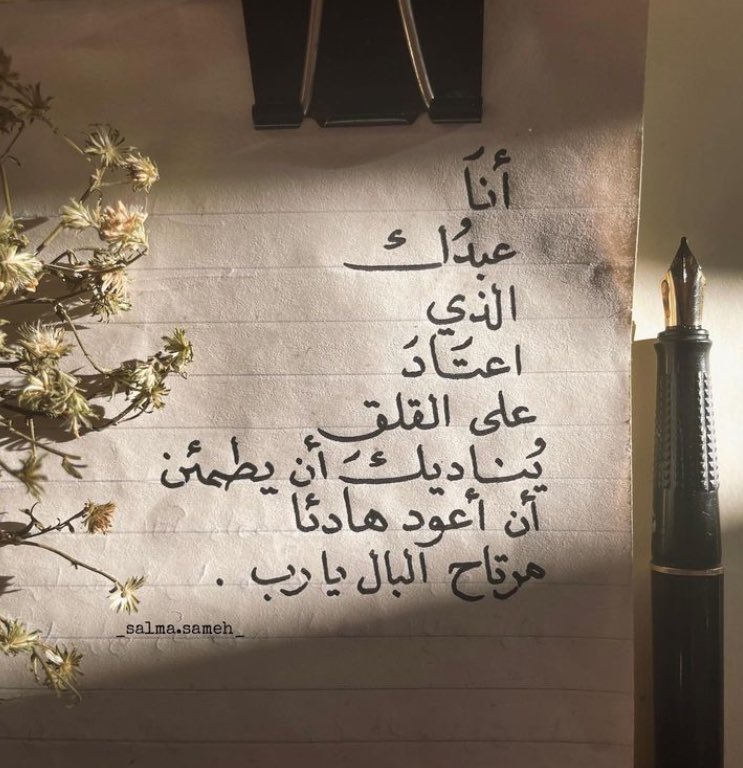 أنَا
عبدُك
الذي
اعتَادَ
على القلق
يُناديكَ أن يطمئن
أن أعود هادئا
مرتاح البال يارب .
_salma.sameh_